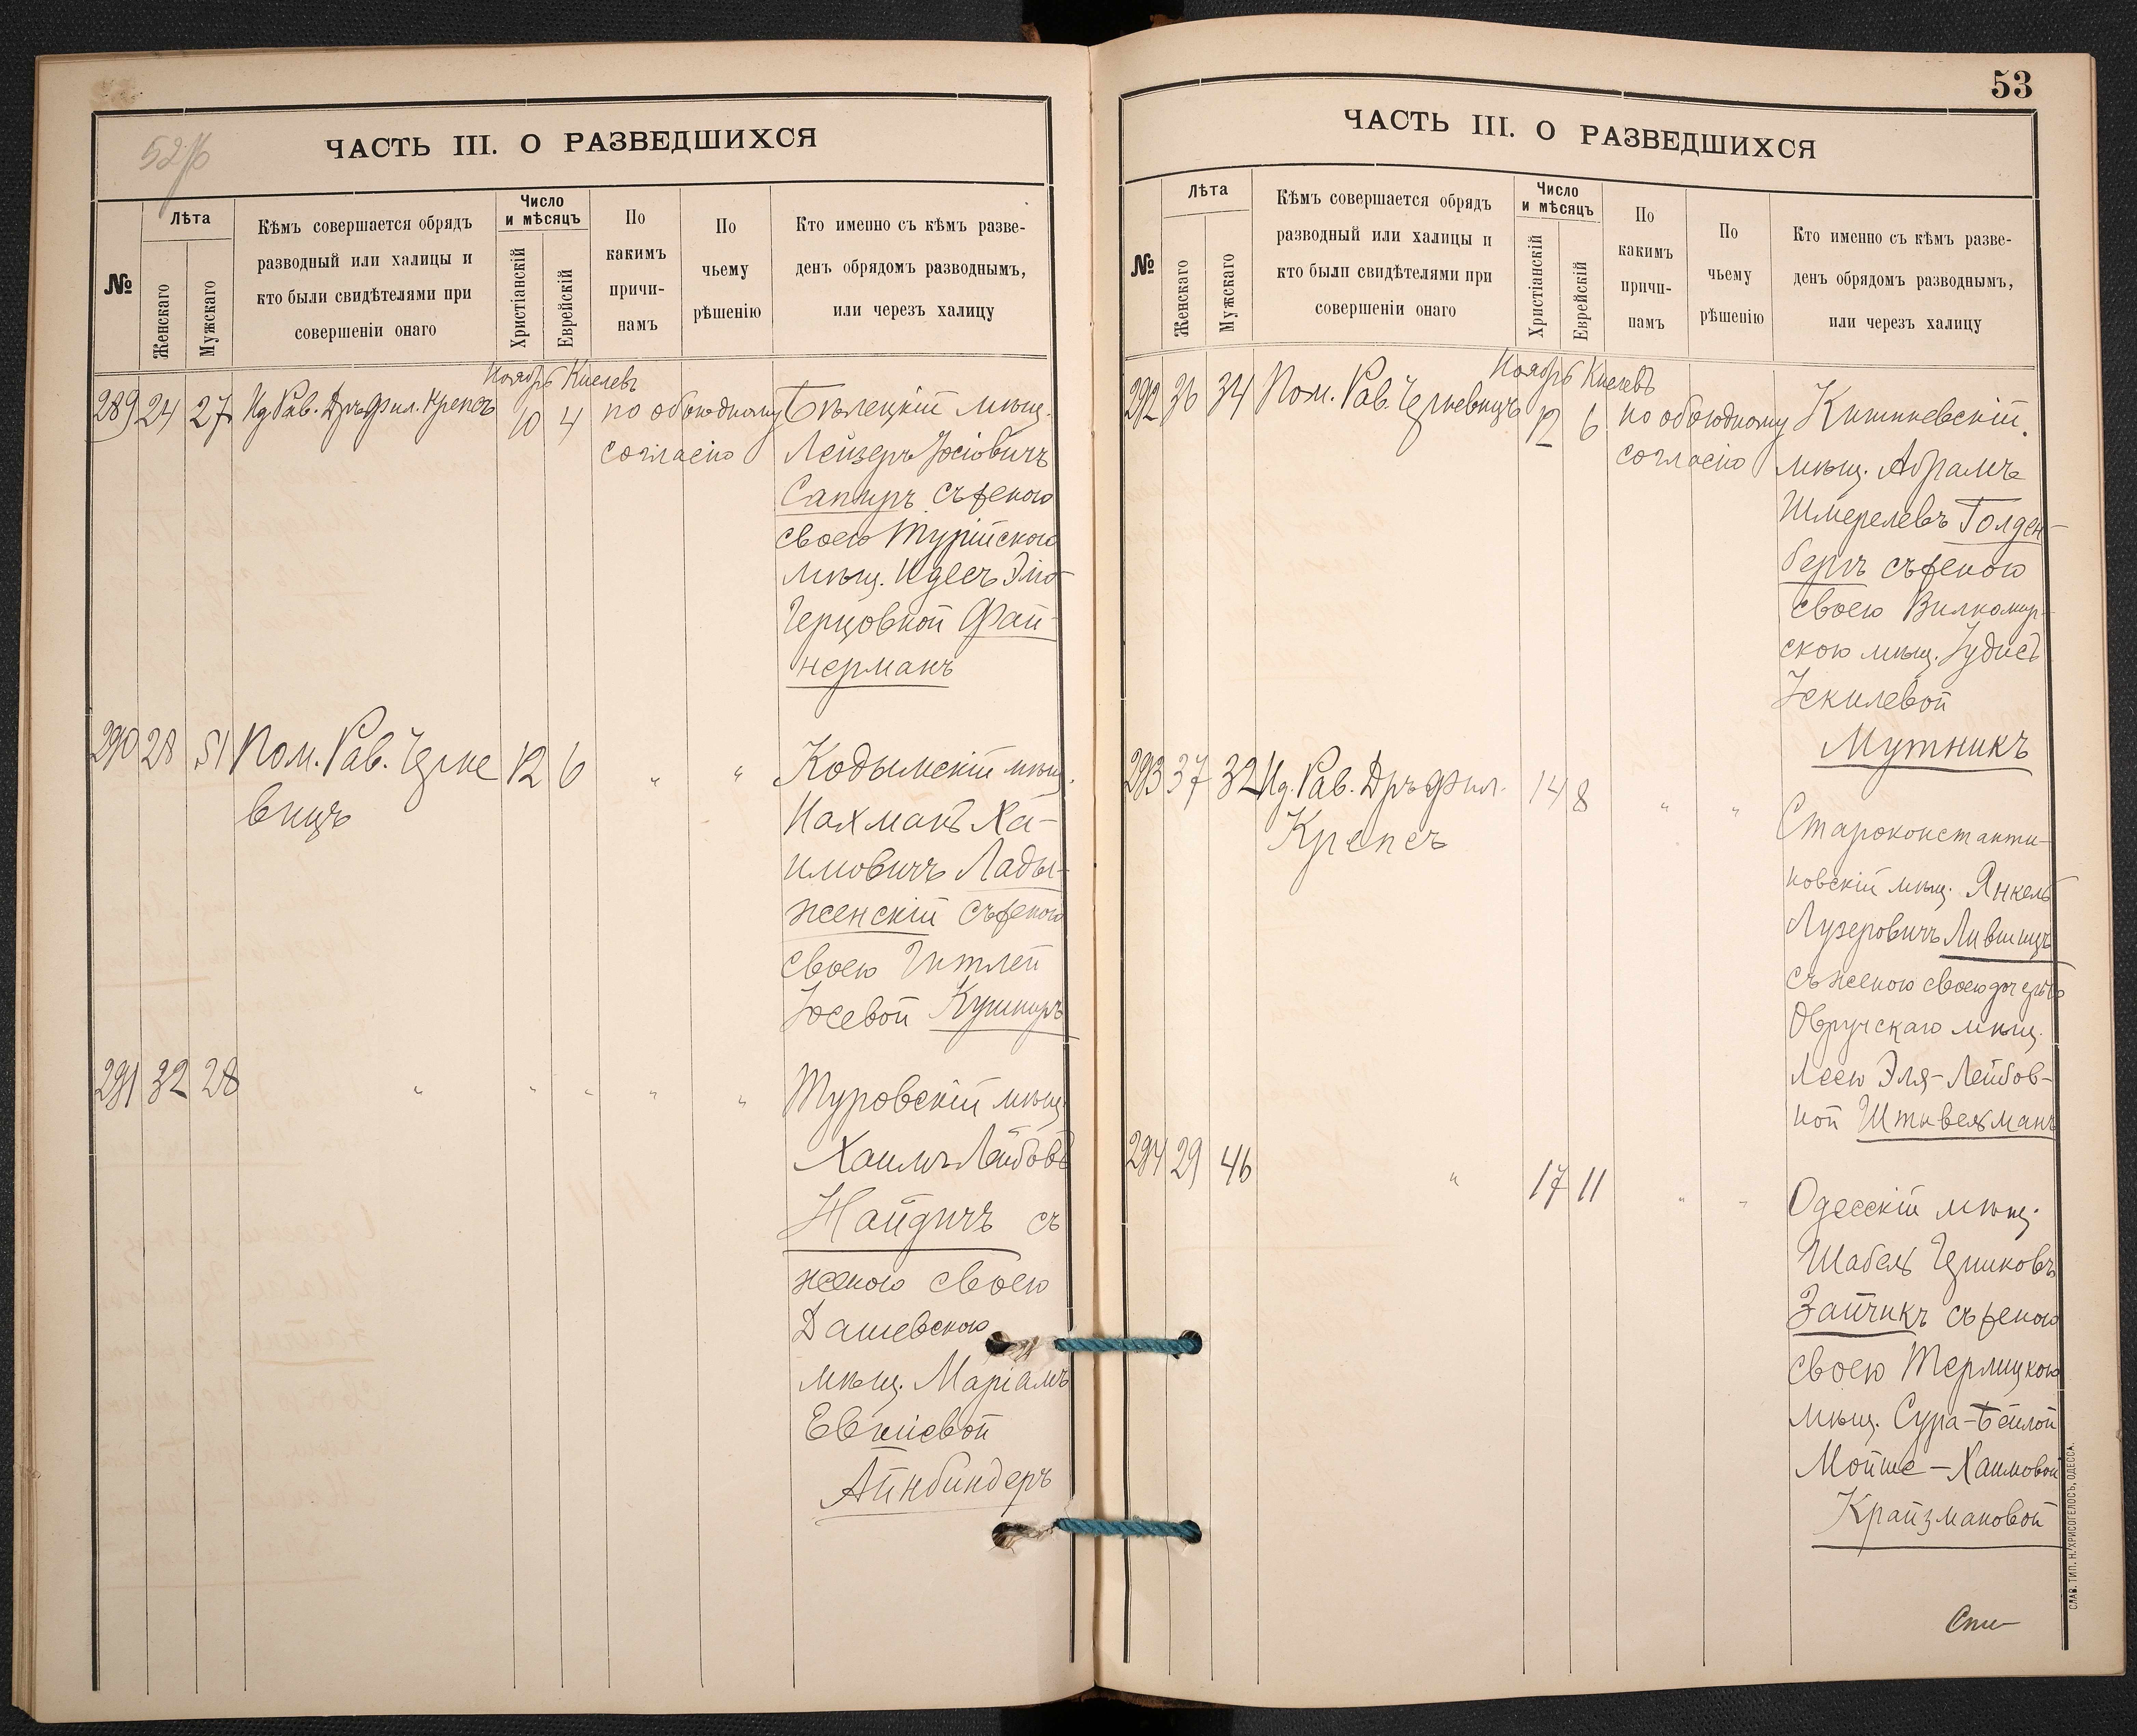 52 об
ЧАСТЬ III. О РАЗВЕДШИХСЯ
№
Лѣта
Женскаго
Мужскаго
Кѣмъ совершается обрядъ
разводный или халицы и
кто были свидѣтелями при
совершеніи онаго
Число
и мѣсяцъ
Христіанскій
Еврейскій
По
какимъ
причи-
намъ
По
чьему
рѣшенію
Кто именно съ кѣмъ разве-
денъ обрядомъ разводнымъ,
или черезъ халицу
Ноябрь Кислевъ
289 24 27 Ид. Рав. Дръ Фил. Крепсъ 10 4 по обоюдному Бѣлецкій мѣщ.
согласію Лейзеръ Іосіовичъ
Сапиръ съ женою
своею Турійскою
мѣщ. Идесъ Эліо
Герцовной Фай-
нерманъ
290 28 51 Пом. Рав. Черке 12 6 " " Кодымскій мѣщ.
вицъ Нахманъ Ха-
имовичъ Лады-
женскій съ женою
своею Гитлей
Іосевой Кушниръ
291 32 28 " " " " " Туровскій мѣщ.
Хаимъ Лейбовъ
Найдичъ съ
женою своею
Дашевскою
мѣщ. Маріамъ
Евсіевой
Айнбиндеръ
53
ЧАСТЬ III. О РАЗВЕДШИХСЯ
№
Лѣта
Женскаго
Мужскаго
Кѣмъ совершается обрядъ
разводный или халицы и
кто были свидѣтелями при
совершеніи онаго
Число
и мѣсяцъ
Христіанскій
Еврейскій
По
какимъ
причи-
намъ
По
чьему
рѣшенію
Кто именно съ кѣмъ разве-
денъ обрядомъ разводнымъ,
или черезъ халицу
Ноябрь Кислевъ
292 36 34 Пом. Рав. Черкевицъ 12 6 по обоюдному Кишиневскій
согласію мѣщ. Абрамъ
Шмерелевъ Голден-
бергъ съ женою
своею Вилкомир-
скою мѣщ. Іудисъ
Іекилевой
Мутникъ
293 37 32 Ид. Рав. Дръ Фил. 14 8 " "
Крепсъ Староконстанти-
новскій мѣщ. Янкель
Лузеровичъ Лившицъ
съ женою своею дочерью
Овручскаго мѣщ.
Леею Эля-Лейбов-
ной Штивельманъ
294 29 46 " 17 11 " " Одесскій мѣщ.
Шабель Гершковъ
Зайчикъ съ женою
своею Терлицкою
мѣщ. Сура-Бейлой
Мойше-Хаимовой
Крайзмановой
СЛАВ. ТИП. Н. ХРИСОГЕЛОСЪ, ОДЕССА.